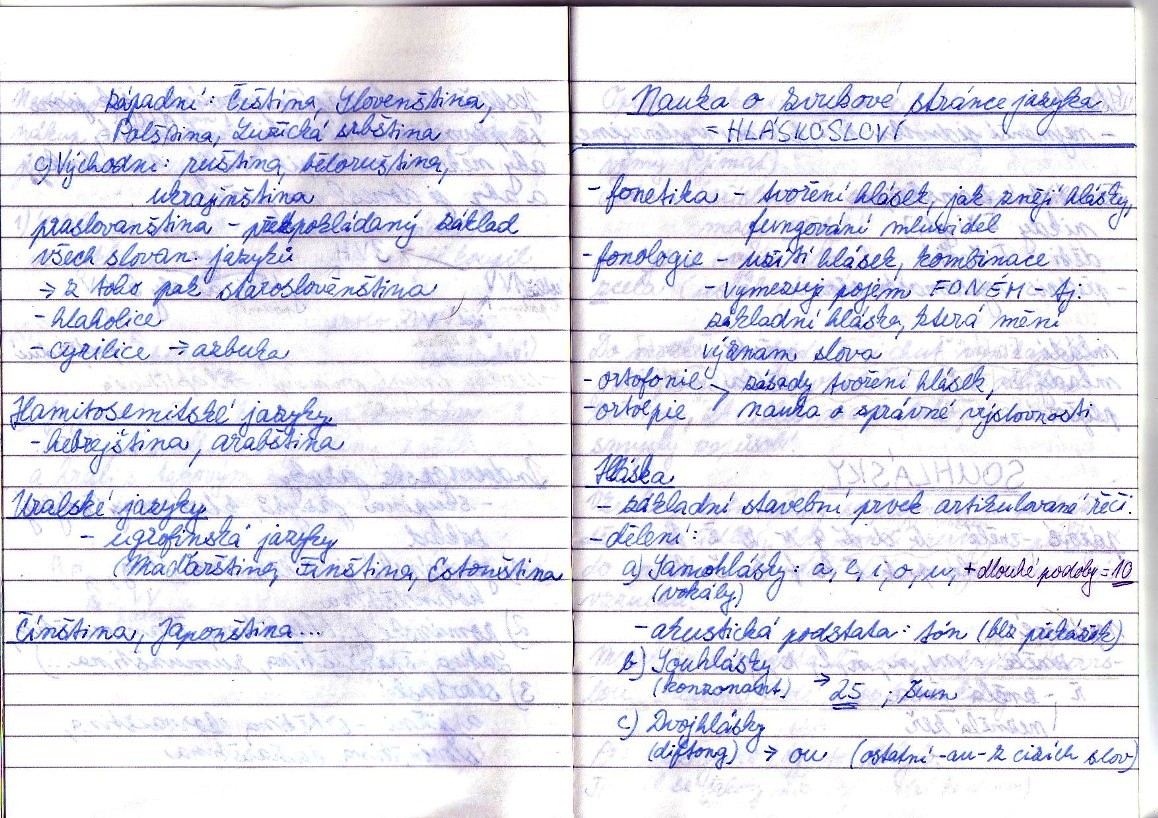 Západní: Čeština, Slovenština,
Polština, Lužická srbština
c) Východní: ruština, běloruština,
ukrajinština
praslovanština - předpokládaný základ
všech slovan. jazyků
→ z toho pak staroslověnština
- hlaholice
- cyrilice → azbuka
Hamitosemitské jazyky
- hebrejština, arabština
Uralské jazyky
- ugrofinská jazyky
(Maďarština, Finština, Estonština
Čínština, Japonština...
Nauka o zvukové stránce jazyka
= HLÁSKOSLOVÍ
- fonetika - tvoření hlásek, jak znějí hlásky,
fungování mluvidel
- fonologie - užití hlásek, kombinace
- vymezuje pojem FONÉM - tj.
základní hláska, která mění
význam slova
- ortofonie → zásady tvoření hlásek,
- ortoepie, nauka o správné výslovnosti
Hláska
- základní stavební prvek artikulované řeči.
- dělení:
a) Samohlásky: a, e, i, o, u, + dlouhé podoby = 10
(vokály)
- akustická podstata: tón (bez překážek)
b) Souhlásky
(konzonant) → 25 ; šum
c) Dvojhlásky
(diftong) → ou (ostatní -au- z cizích slov)